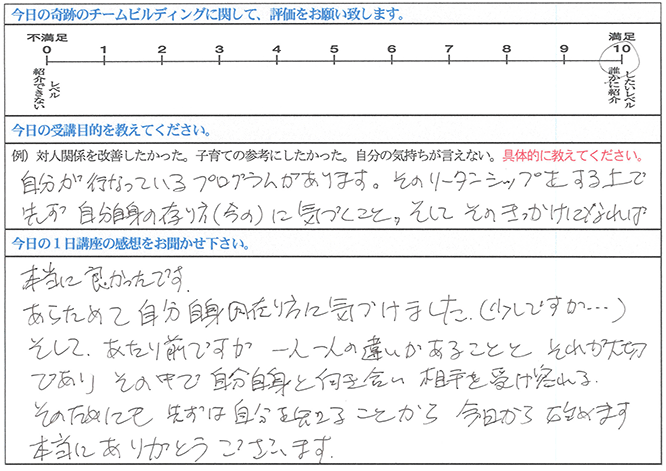 今日の奇跡のチームビルディングに関して、評価をお願い致します。
不満足 満足
0 1 2 3 4 5 6 7 8 9 10
紹介できないレベル 誰かに紹介したいレベル
今日の受講目的を教えてください。
例）対人関係を改善したかった。子育ての参考にしたかった。自分の気持ちが言えない。具体的に教えてください。
自分が行なっているプログラムがあります。そのリーダーシップをする上で
先ず自分自身の在り方(今の)に気づくこと。そしてそのきっかけになれば
今日の１日講座の感想をお聞かせ下さい。
本当に良かったです。
あらためて自分自身の在り方に気づけました。(少しですが…)
そして、あたり前ですが 一人一人の違いがあることと それが大切
であり その中で 自分自身と向き合い 相手を受け容れる。
そのためにも 先ずは自分を知ることから 今日から始めます
本当にありがとうございます。